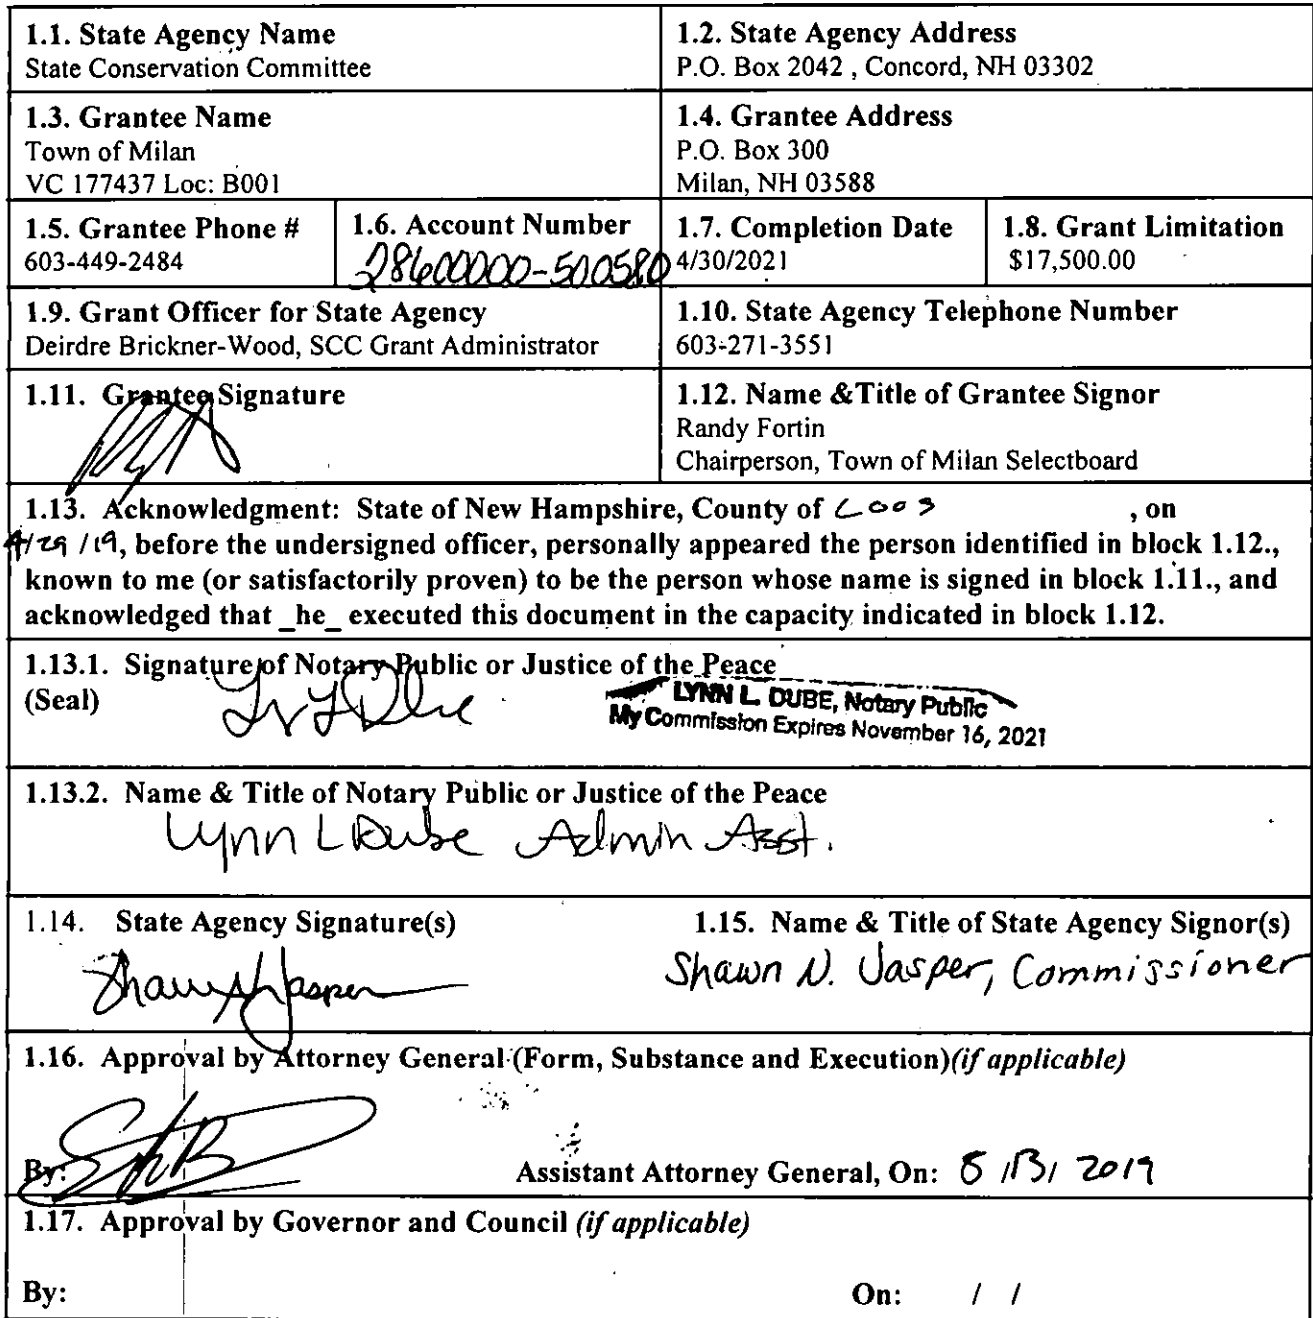 1.1. State Agency Name
State Conservation Committee
1.2. State Agency Address
P.O. Box 2042 , Concord, NH 03302
1.3. Grantee Name
Town of Milan
VC 177437 Loc: B001
1.4. Grantee Address
P.O. Box 300
Milan, NH 03588
1.5. Grantee Phone #
603-449-2484
1.6. Account Number
28600000-500580
1.7. Completion Date
4/30/2021
1.8. Grant Limitation
$17,500.00
1.9. Grant Officer for State Agency
Deirdre Brickner-Wood, SCC Grant Administrator
1.10. State Agency Telephone Number
603-271-3551
1.11. Grantee Signature
1.12. Name &Title of Grantee Signor
Randy Fortin
Chairperson, Town of Milan Selectboard
1.13. Acknowledgment: State of New Hampshire, County of Coos , on
4/29/19, before the undersigned officer, personally appeared the person identified in block 1.12.,
known to me (or satisfactorily proven) to be the person whose name is signed in block 1.11., and
acknowledged that _he_ executed this document in the capacity indicated in block 1.12.
1.13.1. Signature of Notary Public or Justice of the Peace
(Seal)
LYNN L. DUBE, Notary Public
My Commission Expires November 16, 2021
1.13.2. Name & Title of Notary Public or Justice of the Peace
Lynn L Dube Admin Asst.
1.14. State Agency Signature(s)
Shawn N Jasper
1.15. Name & Title of State Agency Signor(s)
Shawn N. Jasper, Commissioner
1.16. Approval by Attorney General (Form, Substance and Execution)(if applicable)
By:
Assistant Attorney General, On: 5 /13/ 2019
1.17. Approval by Governor and Council (if applicable)
By:
On: / /